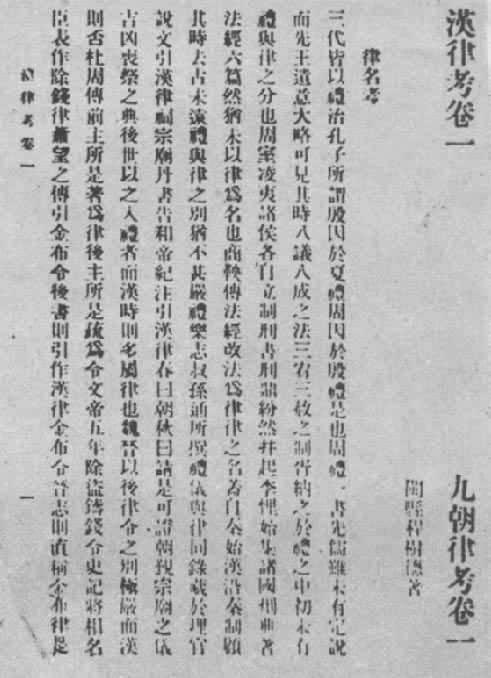 漢律考卷一　九朝律考卷一
閩縣程樹德著
律名考
三代皆以禮治孔子所謂殷因於夏禮周因於殷禮是也周禮一書先儒雖未有定說
而先王遺意大略可見其時八議八成之法三宥三赦之制胥納之於禮之中初未有
禮與律之分也周室凌夷諸侯各自立制刑書刑鼎紛然并起李悝始集諸國刑典著
法經六篇然猶未以律爲名也商鞅傳法經改法爲律律之名蓋自秦始漢沿秦制顧
其時去古未遠禮與律之別猶不甚嚴禮樂志叔孫通所撰禮儀與律同錄藏於理官
說文引漢律祠宗廟丹書告和帝紀注引漢律春曰朝秋曰請是可證朝覲宗廟之儀
吉凶喪祭之典後世以之入禮者而漢時則多屬律也魏晉以後律令之別極嚴而漢
則否杜周傳前主所是著爲律後主所是疏爲令文帝五年除盜鑄錢令史記將相名
臣表作除錢律蕭望之傳引金布令後書則引作漢律金布令晉志則直稱金布律是
漢律考卷一
一